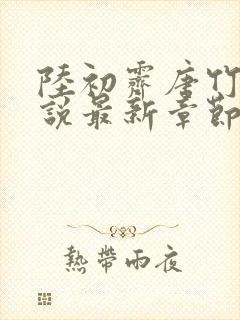 陸初霽唐竹
說最新章節
熱帶雨夜